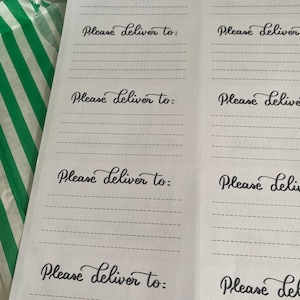 Please deliver to: Please deliver
Please deliver to: Please deliver
Please deliver to: Please deliver
Please deliver to: Please del